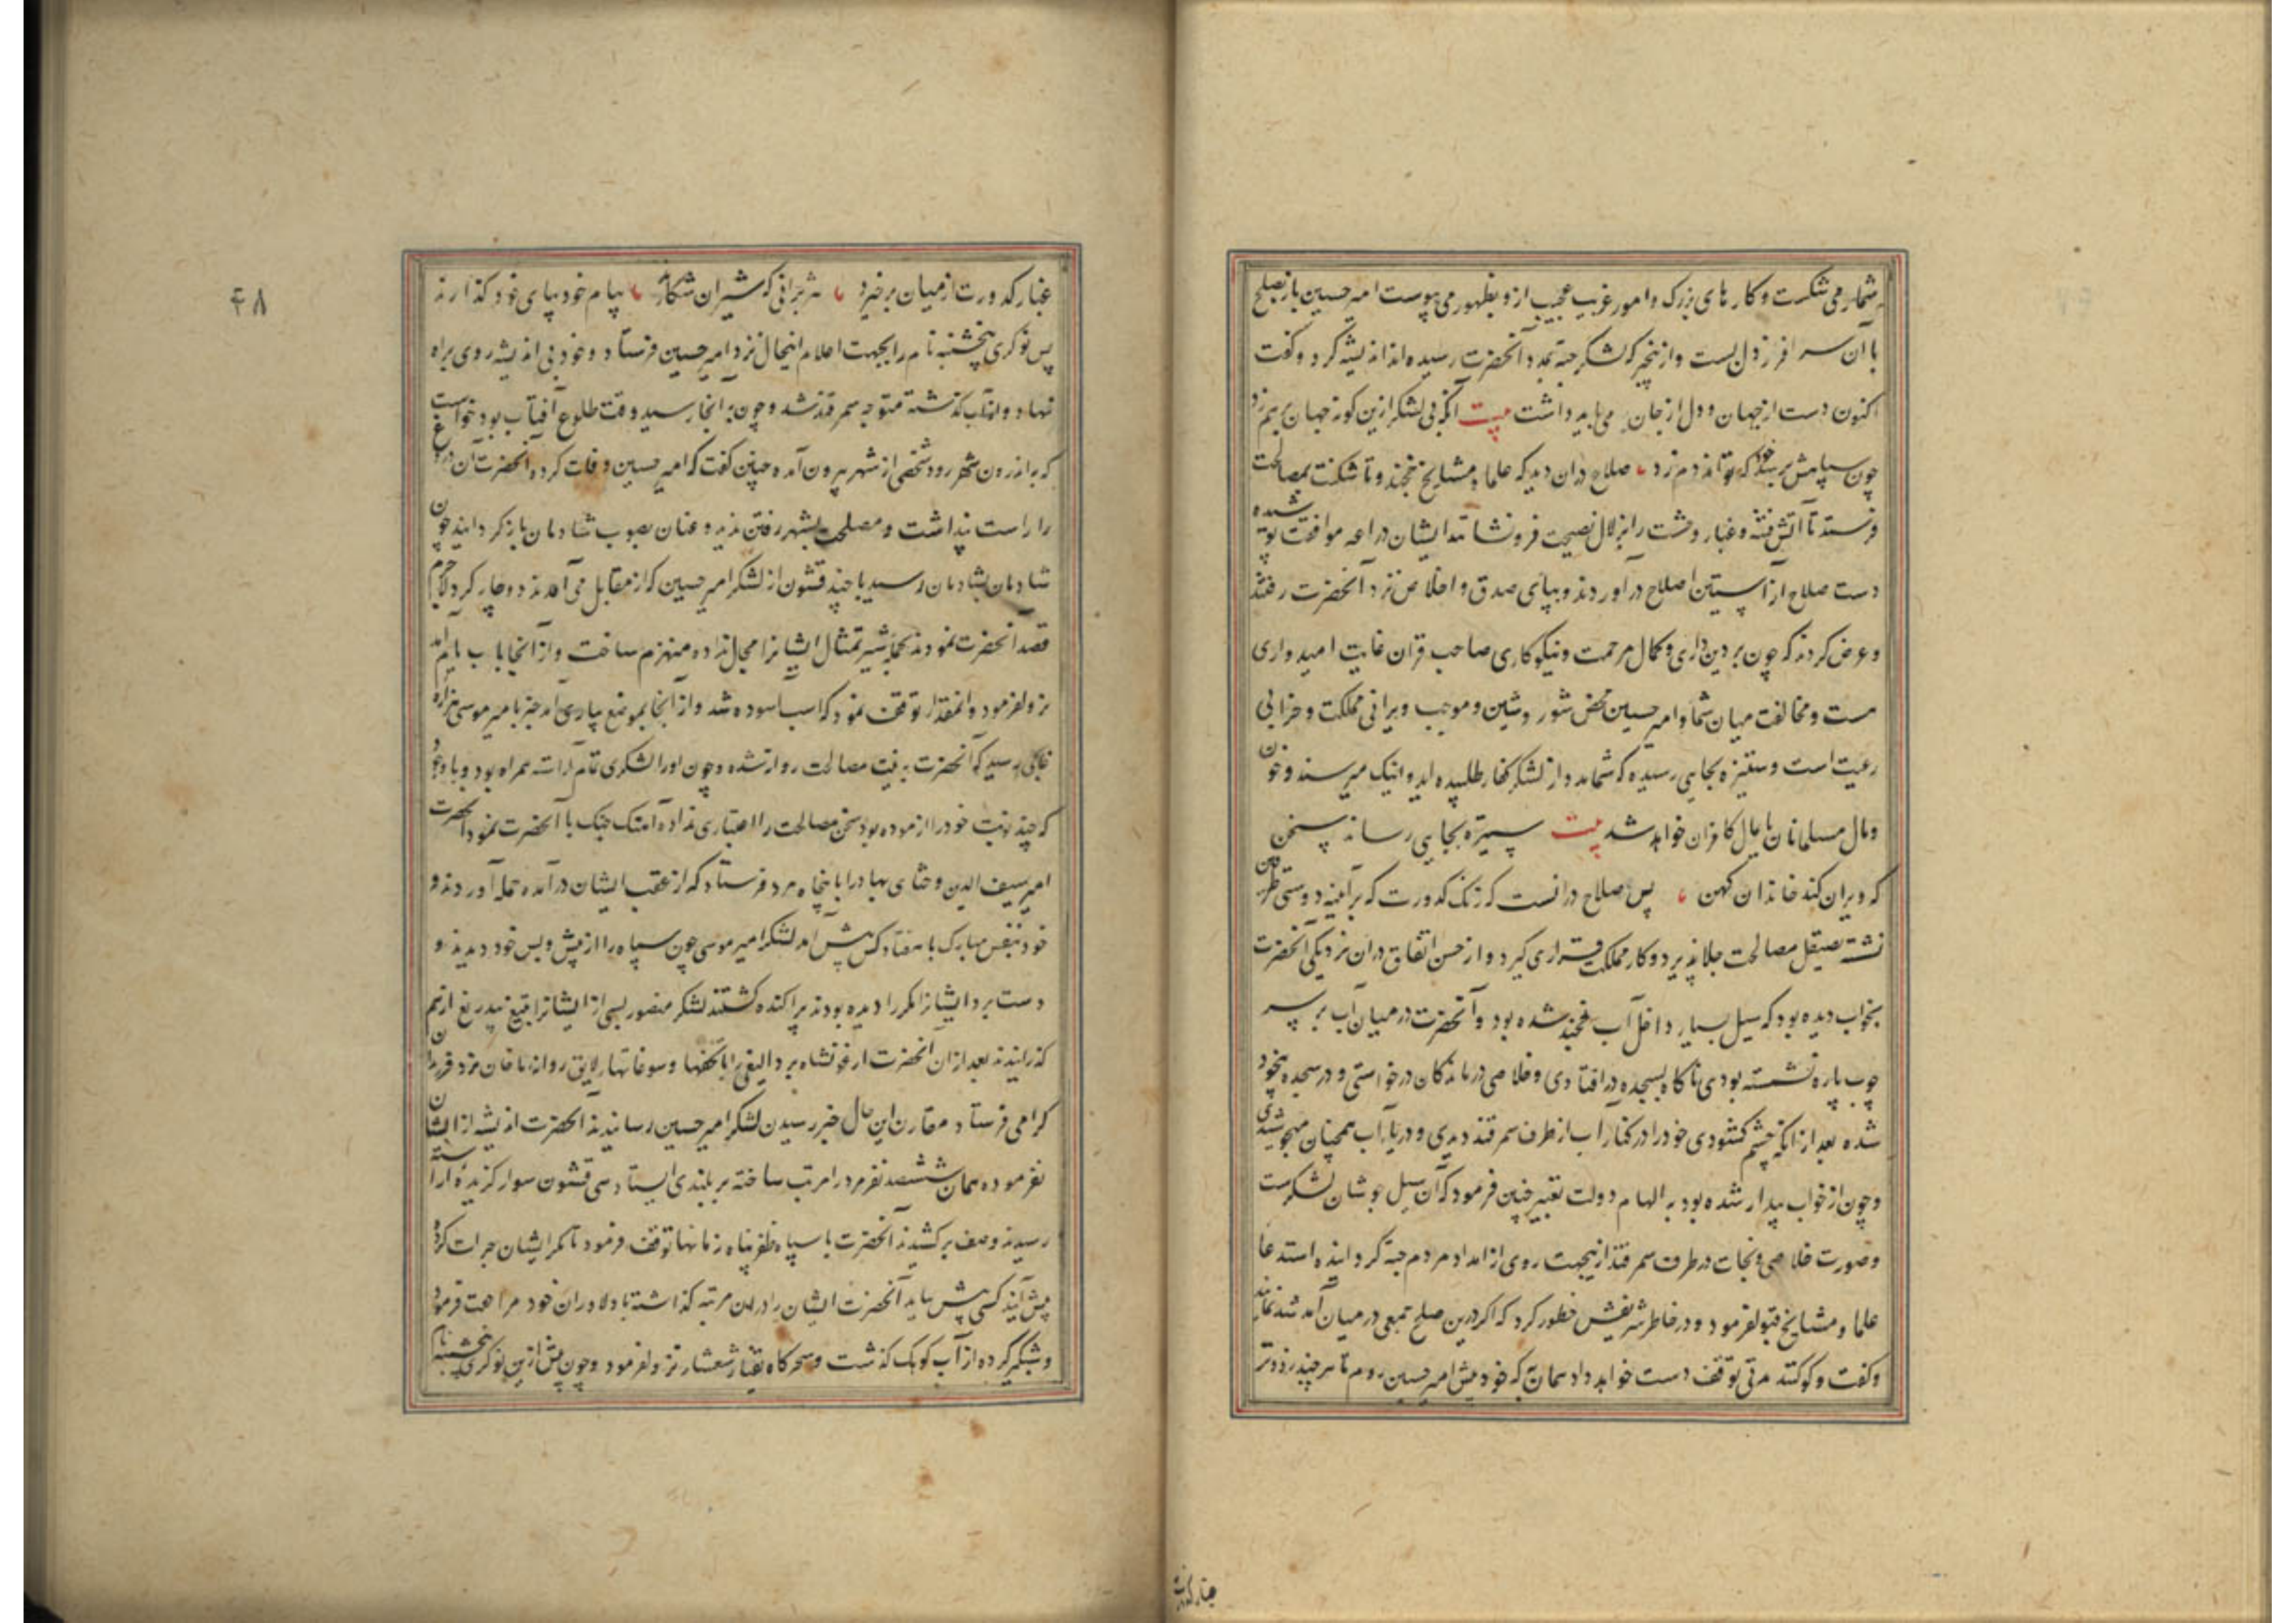 شمار می شکست و کارهای بزرک و امور غریب عجیب ازو بظهور می پیوست امیر حسین باز بصلح
با آن سرافراز دل بست و از خبر که لشکر جته بمدد آنحضرت رسیده اند اندیشه کرد و کفت
اکنون دست از جهان و دل از جان می باید داشت بیت آنکه بی لشکر ازین کونه جهان بر هم زد
چون سپاهش برسد خود که تواند دم زد صلاح دران دید که علما و مشایخ خجند و تاشکنت بمصالحت
فرستد تا آتش فتنه و غبار وحشت را بزلال نصیحت فرو نشانند ایشان دراعه موافقت پوشیده
دست صلاح از آستین اصلاح در آوردند و بپای صدق و اخلاص نزد آنحضرت رفتند
و عرض کردند که چون بر دین داری و کمال مرحمت و نیکوکاری صاحب قران غایت امیدواری
هست و مخالفت میان شما و امیر حسین محض شور و شین و موجب ویرانی مملکت و خرابی
رعیت است و ستیزه بجایی رسیده که شما مدد از لشکر کفار طلبیده اید و اینک میرسند و خون
و مال مسلمانان پایمال کافران خواهد شد بیت ستیزه بجایی رساند سخن
که ویران کند خاندان کهن پس صلاح در انست که زنک کدورت که بر آیینه دوستی طرفین
نشسته بصیقل مصالحت جلا پذیرد و کار مملکت قراری کیرد و از حسن اتفاق دران نزدیکی آنحضرت
بخواب دیده بود که سیل بسیار داخل آب خجند شده بود و آنحضرت در میان آب بر سر
چوب پاره نشسته بودی ناکاه بسجده در افتادی و خلاصی درماندکان درخواستی و در سجده بیخود
شده بعد از انکه چشم کشودی خود را در کنار آب از طرف سمرقند دیدی و دریا آب همچنان میجوشیدی
و چون از خواب بیدار شده بود به الهام دولت تعبیر چنین فرمود که آن سیل جوشان لشکرست
و صورت خلاصی و نجات در طرف سمرقند ازینجهت روی از امداد مردم جته کردانیده استدعا
علما و مشایخ قبول فرمود و در خاطر شریفش خطور کرد که اکر درین صلح جمعی در میان آمد شد نمایند
و کفت و کو کنند مدتی توقف دست خواهد داد همان به که خود پیش امیر حسین روم تا هر چند زودتر
غبار کدورت
۴۸
غبار کدورت از میان بر خیزد هژبرانی که شیران شکارند پیام خود بپای خود کذارند
پس نوکری پنجشنبه نام را بجهت اعلام اینحال نزد امیر حسین فرستاد و خود بی اندیشه روی براه
نهاد و از آب کذشته متوجه سمرقند شد و چون به انجا رسید وقت طلوع آفتاب بود خواست
که باندرون شهر رود شخصی از شهر بیرون آمده چنین کفت که امیر حسین وفات کرده آنحضرت آن دروغ
را راست پنداشت و مصلحت بشهر رفتن ندید و عنان بصوب شادمان باز کردانید چون
شادمان بشادمان رسید با چند قشون از لشکر امیر حسین که از مقابل می آمدند دوچار کرد لاجرم
قصد آنحضرت نمودند بحمله شیر تمثال ایشانرا مجال نداده منهزم ساخت و از آنجا باب یام آمد
نزول فرمود و انمقدار توقف نمود که اسب آسوده شد و از آنجا بموضع یاری آمد خبر بامیر موسی
رسید که آنحضرت به نیت مصالحت روان شده و چون او را لشکری تمام آراسته همراه بود و با وجود
که چند نوبت خود را ازموده بود سخن مصالحت را اعتباری نداده آهنک جنک با آنحضرت نمود آنحضرت
امیر سیف الدین و ختای بهادر را با پنجاه مرد فرستاد که از عقب ایشان در آمده حمله آوردند و
خود بنفس مبارک با هفتاد کس پیش آمد لشکر امیر موسی چون سپاه را از پیش و پس خود دیدند و
دست برد ایشانرا مکرر دیده بودند پراکنده کشتند لشکر منصور بسی از ایشانرا بتیغ بیدریغ از هم
کذرانیدند بعد از ان آنحضرت ارغونشاه بردالیغی را با تحفها و سوغاتها لایق روانه ماخان نزد فرزندان
کرامی فرستاد مقارن این حال خبر رسیدن لشکر امیر حسین رسانیدند آنحضرت اندیشه از ایشان
نفرموده همان ششصد نفر مرد را مرتب ساخته بر بلندی ایستاد سی قشون سوار کزیده آراسته
رسیدند و صف بر کشیدند آنحضرت با سپاه ظفر پناه زمانها توقف فرمود تا مکر ایشان جرات کرده
پیش آیند کسی پیش نیامد آنحضرت ایشان را در ان مرتبه کذاشته با دلاوران خود مراجعت فرمود
و شبکیر کرده از آب کوهک کذشت و سحرکاه نزول فرمود و چون پیش ازین نوکری پنجشنبه نام